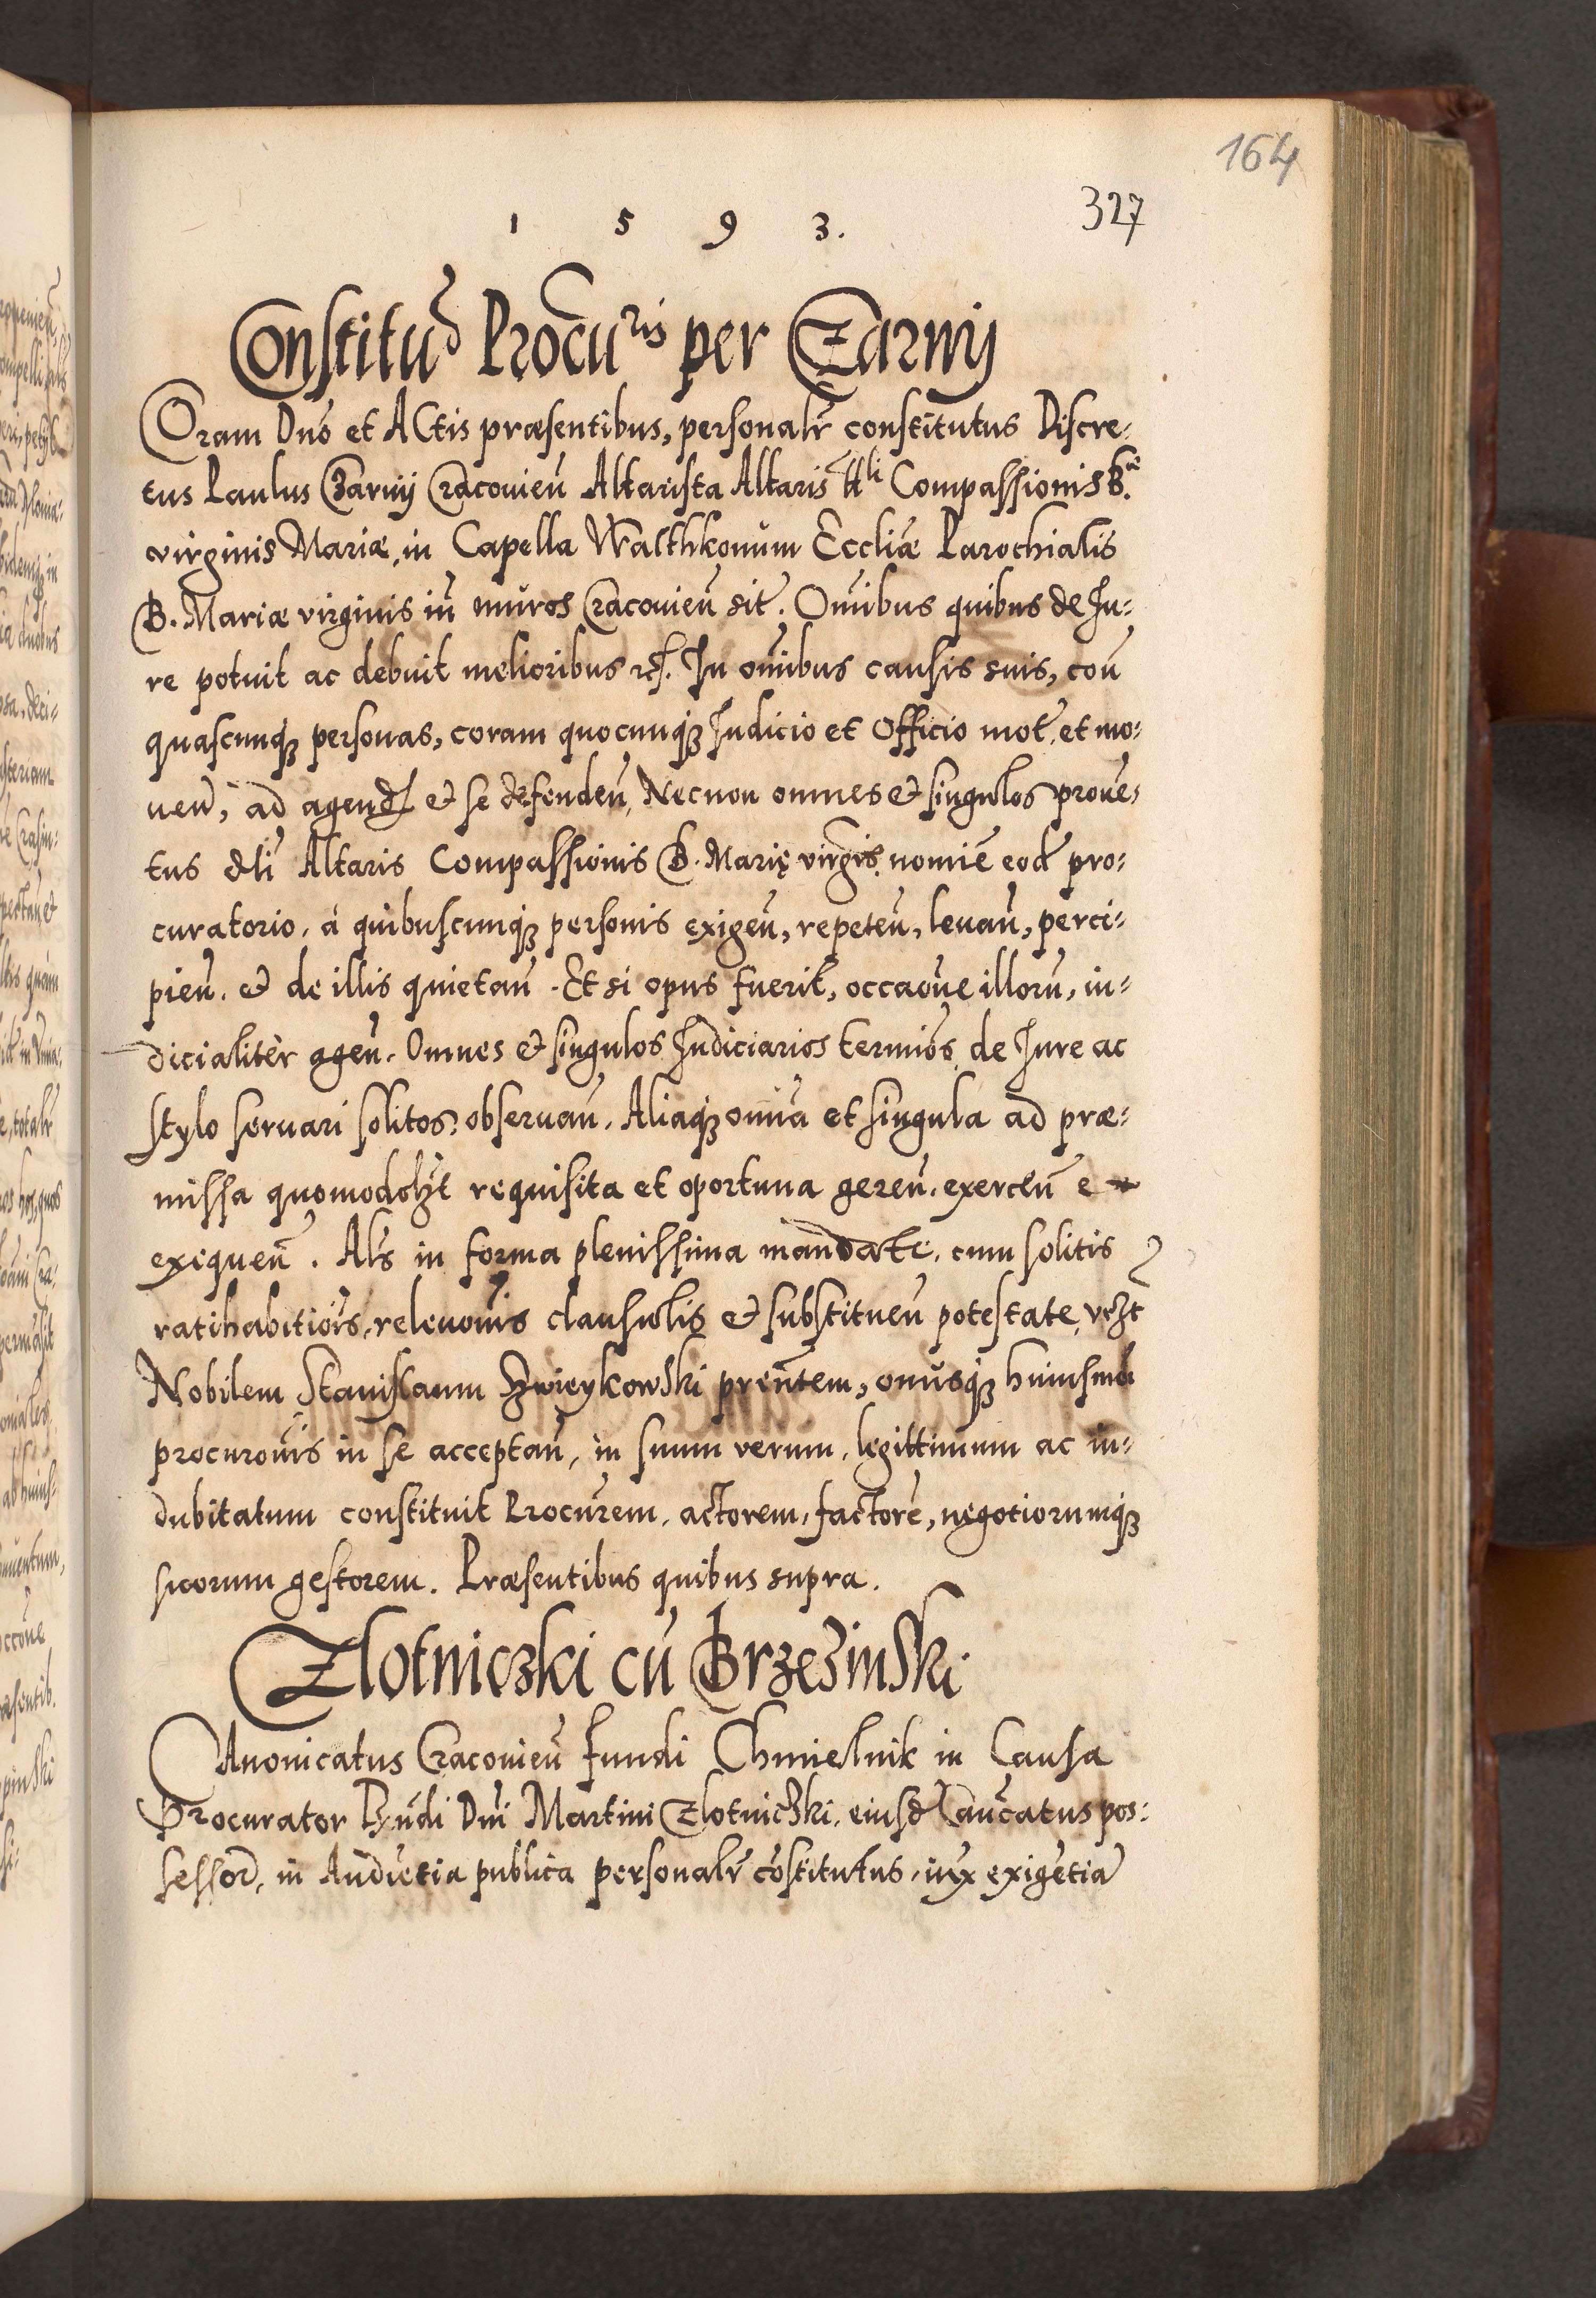 164
327
1 5 9 3.
Constitu͞o Procu͞ris per Czarnij
Coram Dno͞ et Actis præsentibus, personalr͞ constitutus Discre-
tus Paulus Czarnij Cracovien͞ Altarista Altaris tt͞li Compassionis B.
virginis Mariæ, in Capella Waltkonum Eccliæ Parochialis
B. Mariæ virginis in͞ muros Cracovien͞ sit͞. Omibus quibus de Ju-
re potuit ac debuit melioribus etc. In om͞ibus causis suis, con͞
quascunq; personas, coram quocunq; Judicio et Officio mot͞, et mo-
uen͞, ad agend͞ & se defenden͞, Necnon omnes & singulos proue-
tus d͞ti Altaris Compassionis B. Marię virg͞is, nomi͞e eod͞ pro-
curatorio, à quibuscunq; personis exigen͞, repeten͞, leuan͞, perci-
pien͞, & de illis quietan͞. Et si opus fuerit, occao͞ne illoru͞, iu-
dicialitèr agen͞. Omnes & singulos Judiciarios termi͞os, de Jure ac
stylo seruari solitos, obseruan͞. Aliaq; omi͞a et singula ad præ-
missa quomodolz͞t requisita et oportuna geren͞, exercen͞ e
exequen͞. Al͞s in forma plenissima mandate, cum solitis
ratihabitio͞is, releuo͞nis clausulis & substituen͞ potestate, vz͞t
Nobilem Stanislaum Zwieykowski pren͞tem, onusq; huiusm͞di
procuro͞nis in se acceptan͞, in suum verum, legittimum ac in-
dubitatum constituit Procu͞rem, actorem, factore͞, negotiorumq;
suorum gestorem. Præsentibus quibus supra.
Zlotniczki cu͞ Brzezinski
Canonicatus Cracovien͞ fundi Chmielnik in Causa
Procurator Rn͞di Dn͞i Martini Zlotniczki, eiusd͞ Can͞catus pos-
sessor͞, in Audie͞tia publica personalr͞ co͞stitutus, iux͞ exige͞tia͞